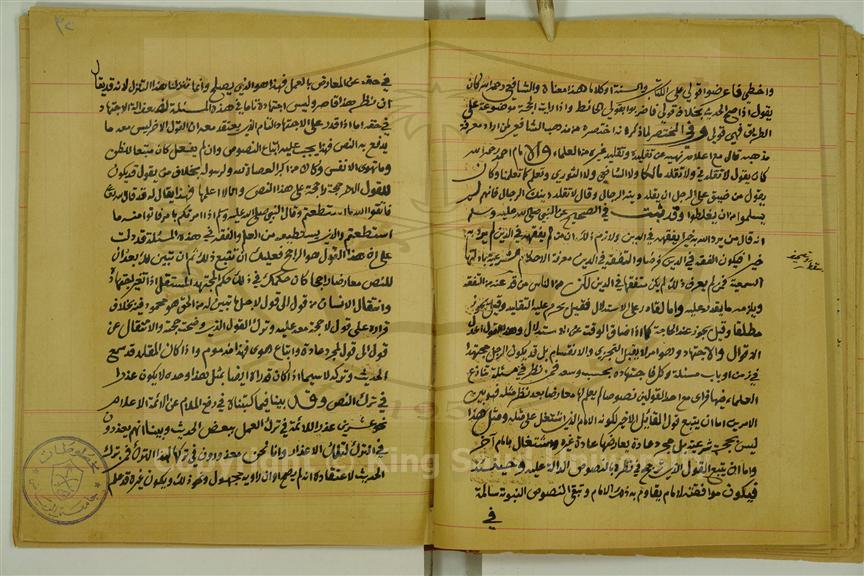 واخطئ فاعرضوا قولي على الكتاب والسنة او كلاما هذا معناه والشافعي رحمه الله كان
يقول اذا صح الحديث بخلاف قولي فاضربوا بقولي الحائط واذا رايت الحجة موضوعة على
الطريق فهي قولي وفي المختصر لما ذكر انه اختصره من مذهب الشافعي لمن اراد معرفة
مذهبه قال مع اعلامه نهيه عن تقليده وتقليد غيره من العلماء والامام احمد رحمه الله
كان يقول لا تقلدني ولا تقلد مالكا ولا الشافعي ولا الثوري وتعلم كما تعلمنا وكان
يقول من ضيق علم الرجل ان يقلد دينه الرجال وقال لا تقلد دينك الرجال فانهم لن
يسلموا من ان يغلطوا وقد ثبت في الصحيح عن النبي صلى الله عليه وسلم
انه قال من يرد الله به خيرا يفقهه في الدين ولازم ذلك ان من لم يفقهه في الدين لم يرد به
خيرا فيكون التفقه في الدين فرضا والتفقه في الدين معرفة الاحكام الشرعية بادلتها
السمعية فمن لم يعرف ذلك لم يكن متفقها في الدين لكن من الناس من قد عجز عن التفقه
ويلزمه ما يقدر عليه واما القادر على الاستدلال فقيل يحرم عليه التقليد وقيل يجوز
مطلقا وقيل يجوز عند الحاجة كما اذا ضاق الوقت عن الاستدلال وهذا القول اعدل
الاقوال والاجتهاد ليس هو امرا لا يقبل التجزي والانقسام بل قد يكون الرجل مجتهدا
في فن او باب او مسئلة وكل فاجتهاده بحسب وسعه فمن نظر في مسئلة تنازع
العلماء فيها فراى مع احد القولين نصوصا لم يعلم لها معارضا بعد نظر مثله فهو بين
امرين اما ان يتبع قول القائل الاخر لكونه الامام الذي اشتغل على مذهبه ومثل هذا
ليس بحجة شرعية بل مجرد عادة يعارضها عادة غيره واشتغاله بامام اخر
واما ان يتبع القول الذي ترجح في نظره بالنصوص الدالة عليه وحينئذ
فيكون موافقته لامام يقاوم به ذلك الامام وتبقى النصوص النبوية سالمة
في
في حقه عن المعارض بالعمل فهذا هو الذي يصلح وانما تنزلنا هذا التنزل لانه قد يقال
ان نظر هذا قاصر وليس اجتهاده تاما في هذه المسئلة لضعف آلة الاجتهاد
في حقه اما اذا قدر على الاجتهاد التام الذي يعتقد معه ان القول الاخر ليس معه ما
يدفع به النص فهذا يجب عليه اتباع النصوص وان لم يفعل كان متبعا للظن
وما تهوى الانفس وكان من اكبر العصاة لله ولرسوله بخلاف من يقول قد يكون
للقول الاخر حجة راجحة على هذا النص وانا لا اعلمها فهذا يقال له قد قال الله تعالى
فاتقوا الله ما استطعتم وقال النبي صلى الله عليه وسلم اذا امرتكم بامر فاتوا منه ما
استطعتم والذي يستطيعه من العلم والفقه في هذه المسئلة قد دلت
على ان هذا القول هو الراجح فعليك ان تتبع ذلك ثم ان تبين لك بعد ان
للنص معارضا راجحا كان حكمك في ذلك حكم المجتهد المستقل اذا تغير اجتهاده
وانتقال الانسان من قول الى قول لاجل ما تبين له من الحق هو محمود فيه بخلاف
اقراره على قول لا حجة معه عليه وترك القول الذي وضحت حجته والانتقال عن
قول الى قول لمجرد عادة واتباع هوى فهذا مذموم واذا كان المقلد قد سمع
الحديث وتركه لا سيما اذا كان قد رواه ايضا مثل هذا وحده لا يكون عذرا
في ترك النص وقد بينا فيما كتبناه في رفع الملام عن الائمة الاعلام
نحو عشرين عذرا للائمة في ترك العمل ببعض الحديث وبينا انهم معذورون
في الترك لتلك الاعذار وانا نحن معذورون في تركها لهذا الترك فمن ترك
الحديث لاعتقاده انه لم يصح او ان راويه مجهول ونحو ذلك ويكون غيره قد علم